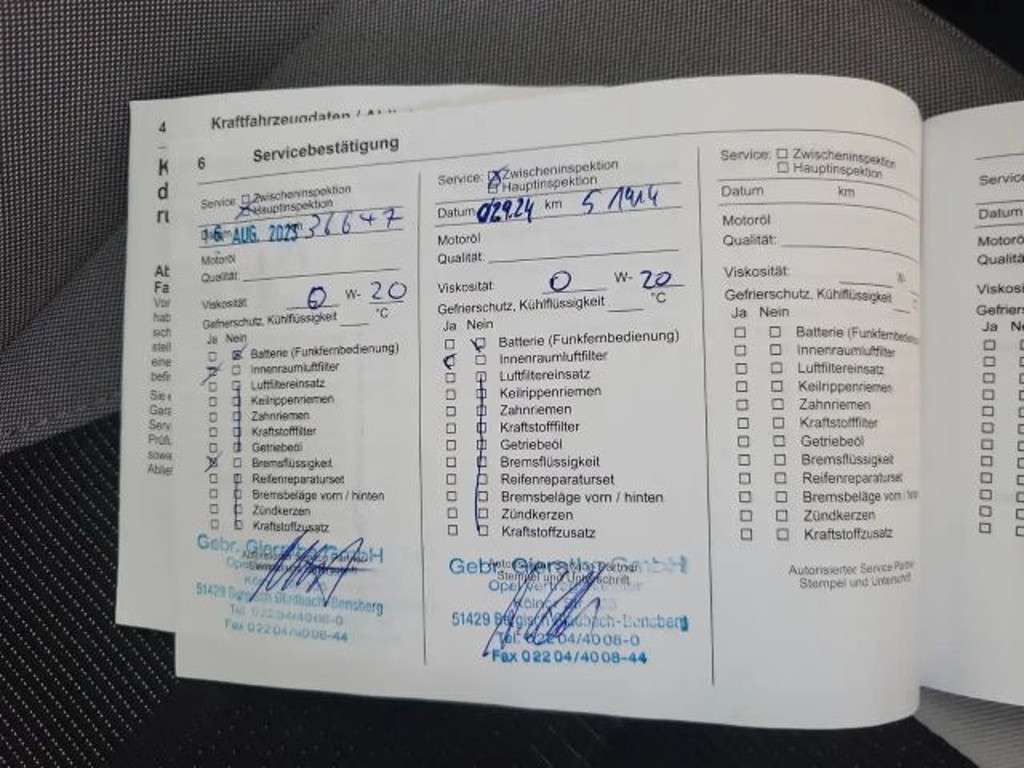 4 Kraftfahrzeugdaten /
6 Servicebestätigung
Service: Zwischeninspektion
Hauptinspektion
16. AUG. 2023 36647
Motoröl
Qualität:
Viskosität: 0 W- 20
Gefrierschutz, Kühlflüssigkeit °C
Ja Nein
Batterie (Funkfernbedienung)
Innenraumluftfilter
Luftfiltereinsatz
Keilrippenriemen
Zahnriemen
Kraftstofffilter
Getriebeöl
Bremsflüssigkeit
Reifenreparaturset
Bremsbeläge vorn / hinten
Zündkerzen
Kraftstoffzusatz
Gebr. Gieraths GmbH
51429 Bergisch Gladbach-Bensberg
Tel. 02204/4008-0
Fax 02204/4008-44
Service: Zwischeninspektion
Hauptinspektion
Datum km 51914
Motoröl
Qualität:
Viskosität: 0 W- 20
Gefrierschutz, Kühlflüssigkeit °C
Ja Nein
Batterie (Funkfernbedienung)
Innenraumluftfilter
Luftfiltereinsatz
Keilrippenriemen
Zahnriemen
Kraftstofffilter
Getriebeöl
Bremsflüssigkeit
Reifenreparaturset
Bremsbeläge vorn / hinten
Zündkerzen
Kraftstoffzusatz
Gebr. Gieraths GmbH
Stempel und Unterschrift
51429 Bergisch Gladbach-Bensberg
Tel. 02204/4008-0
Fax 02204/4008-44
Service: Zwischeninspektion
Hauptinspektion
Datum km
Motoröl
Qualität:
Viskosität: W-
Gefrierschutz, Kühlflüssigkeit
Ja Nein
Batterie (Funkfernbedienung
Innenraumluftfilter
Luftfiltereinsatz
Keilrippenriemen
Zahnriemen
Kraftstofffilter
Getriebeöl
Bremsflüssigkeit
Reifenreparaturset
Bremsbeläge vorn / hinten
Zündkerzen
Kraftstoffzusatz
Autorisierter Service Partner
Stempel und Unterschrift
Service
Datum
Motorö
Qualitä
Viskosi
Gefriers
Ja Nein